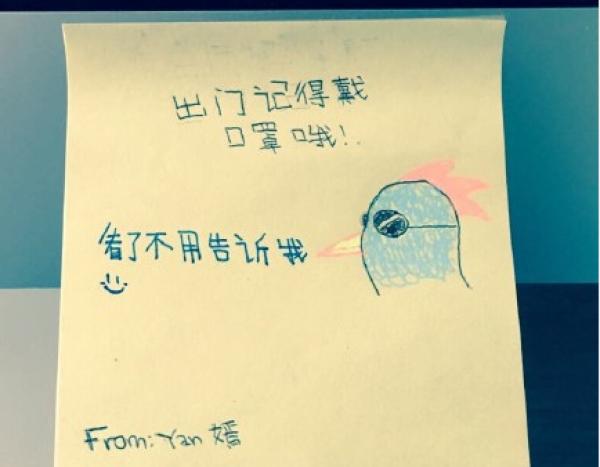 出门记得戴
口罩哦!
看了不用告诉我
From: Yan 嫣